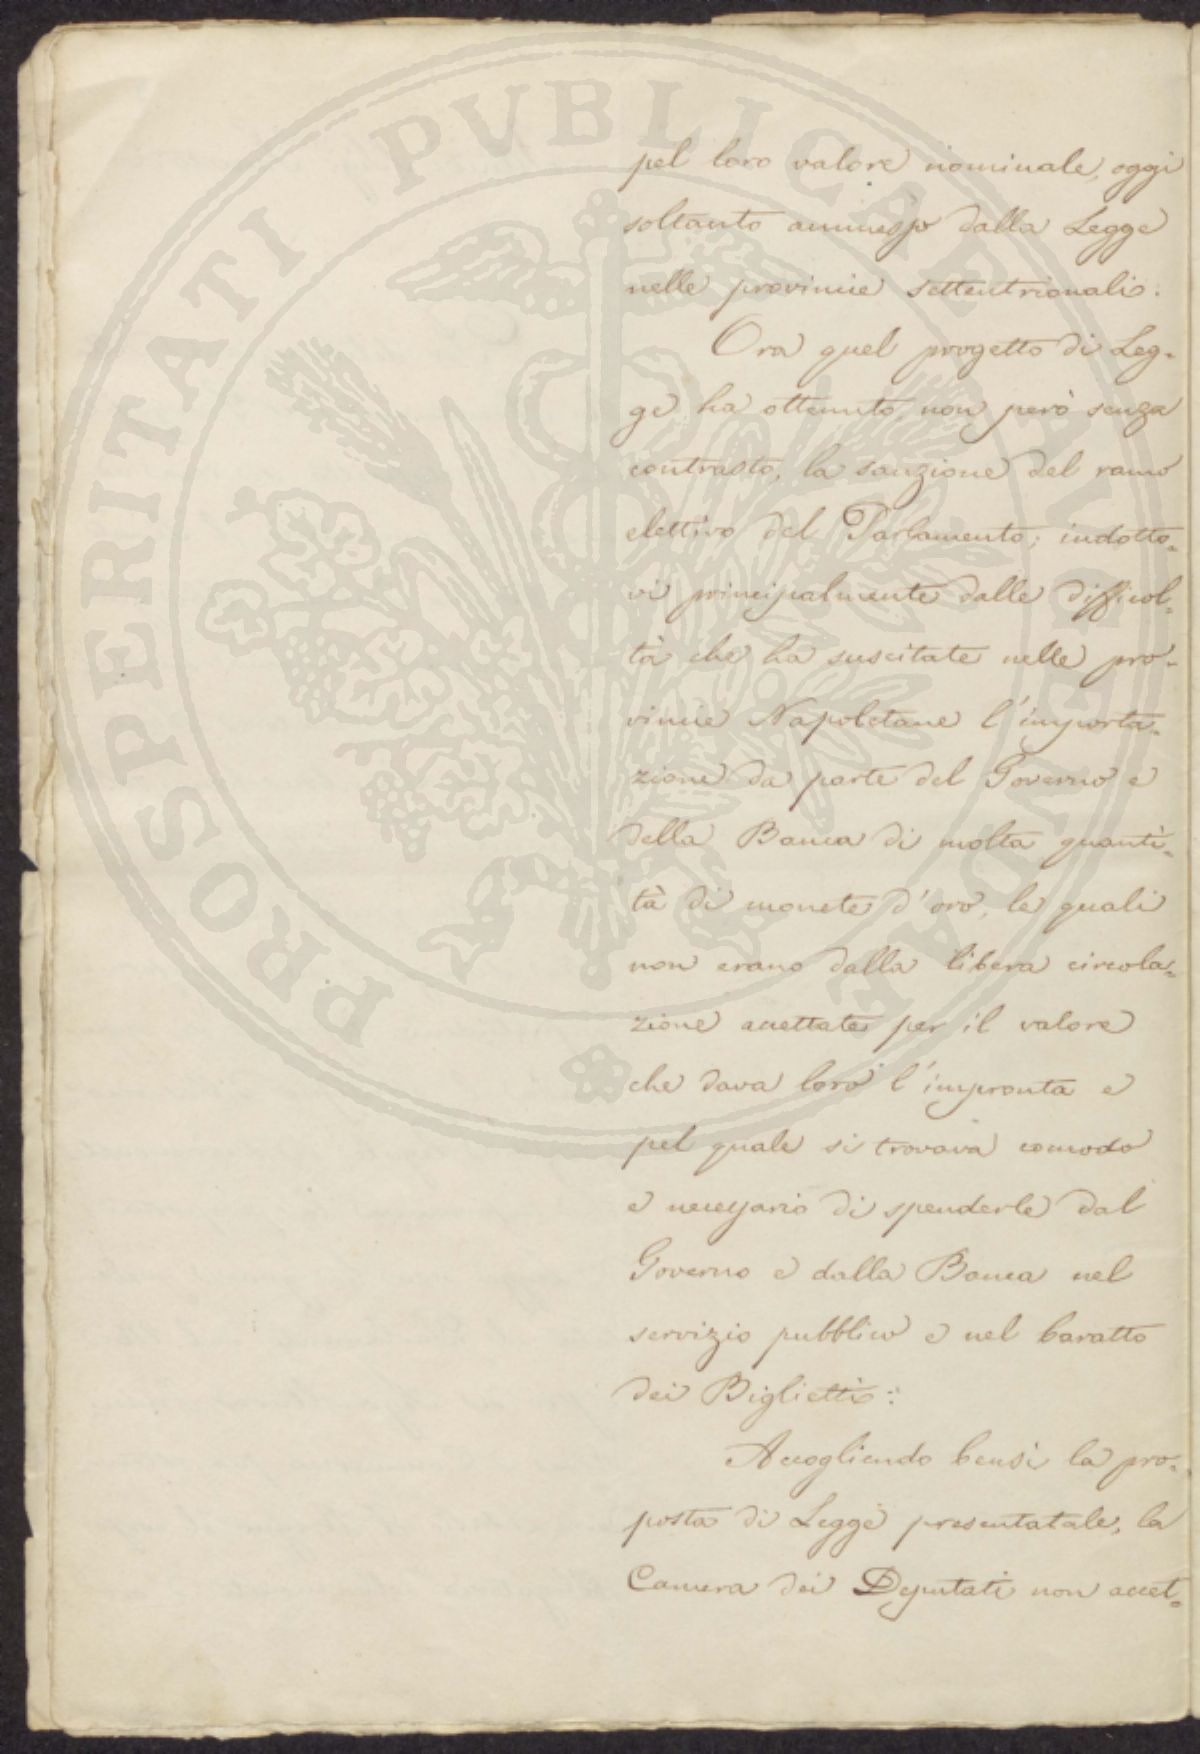 PROSPERITATI PUBLICAE AUGENDAE
pel loro valore nominale, oggi
soltanto ammesso dalla Legge
nelle provincie settentrionali.
Ora quel progetto di Leg-
ge ha ottenuto, non però senza
contrasto, la sanzione del ramo
elettivo del Parlamento; indotto-
vi principalmente dalle difficol-
tà che ha suscitate nelle pro-
vincie Napoletane l'importa-
zione da parte del Governo e
della Banca di molta quanti-
tà di monete d'oro, le quali
non erano dalla libera circola-
zione accettate per il valore
che dava loro l'impronta e
pel quale si trovava comodo
e necessario di spenderle dal
Governo e dalla Banca nel
servizio pubblico e nel baratto
dei Biglietti:
Accogliendo bensì la pro-
posta di Legge presentatale, la
Camera dei Deputati non accet-